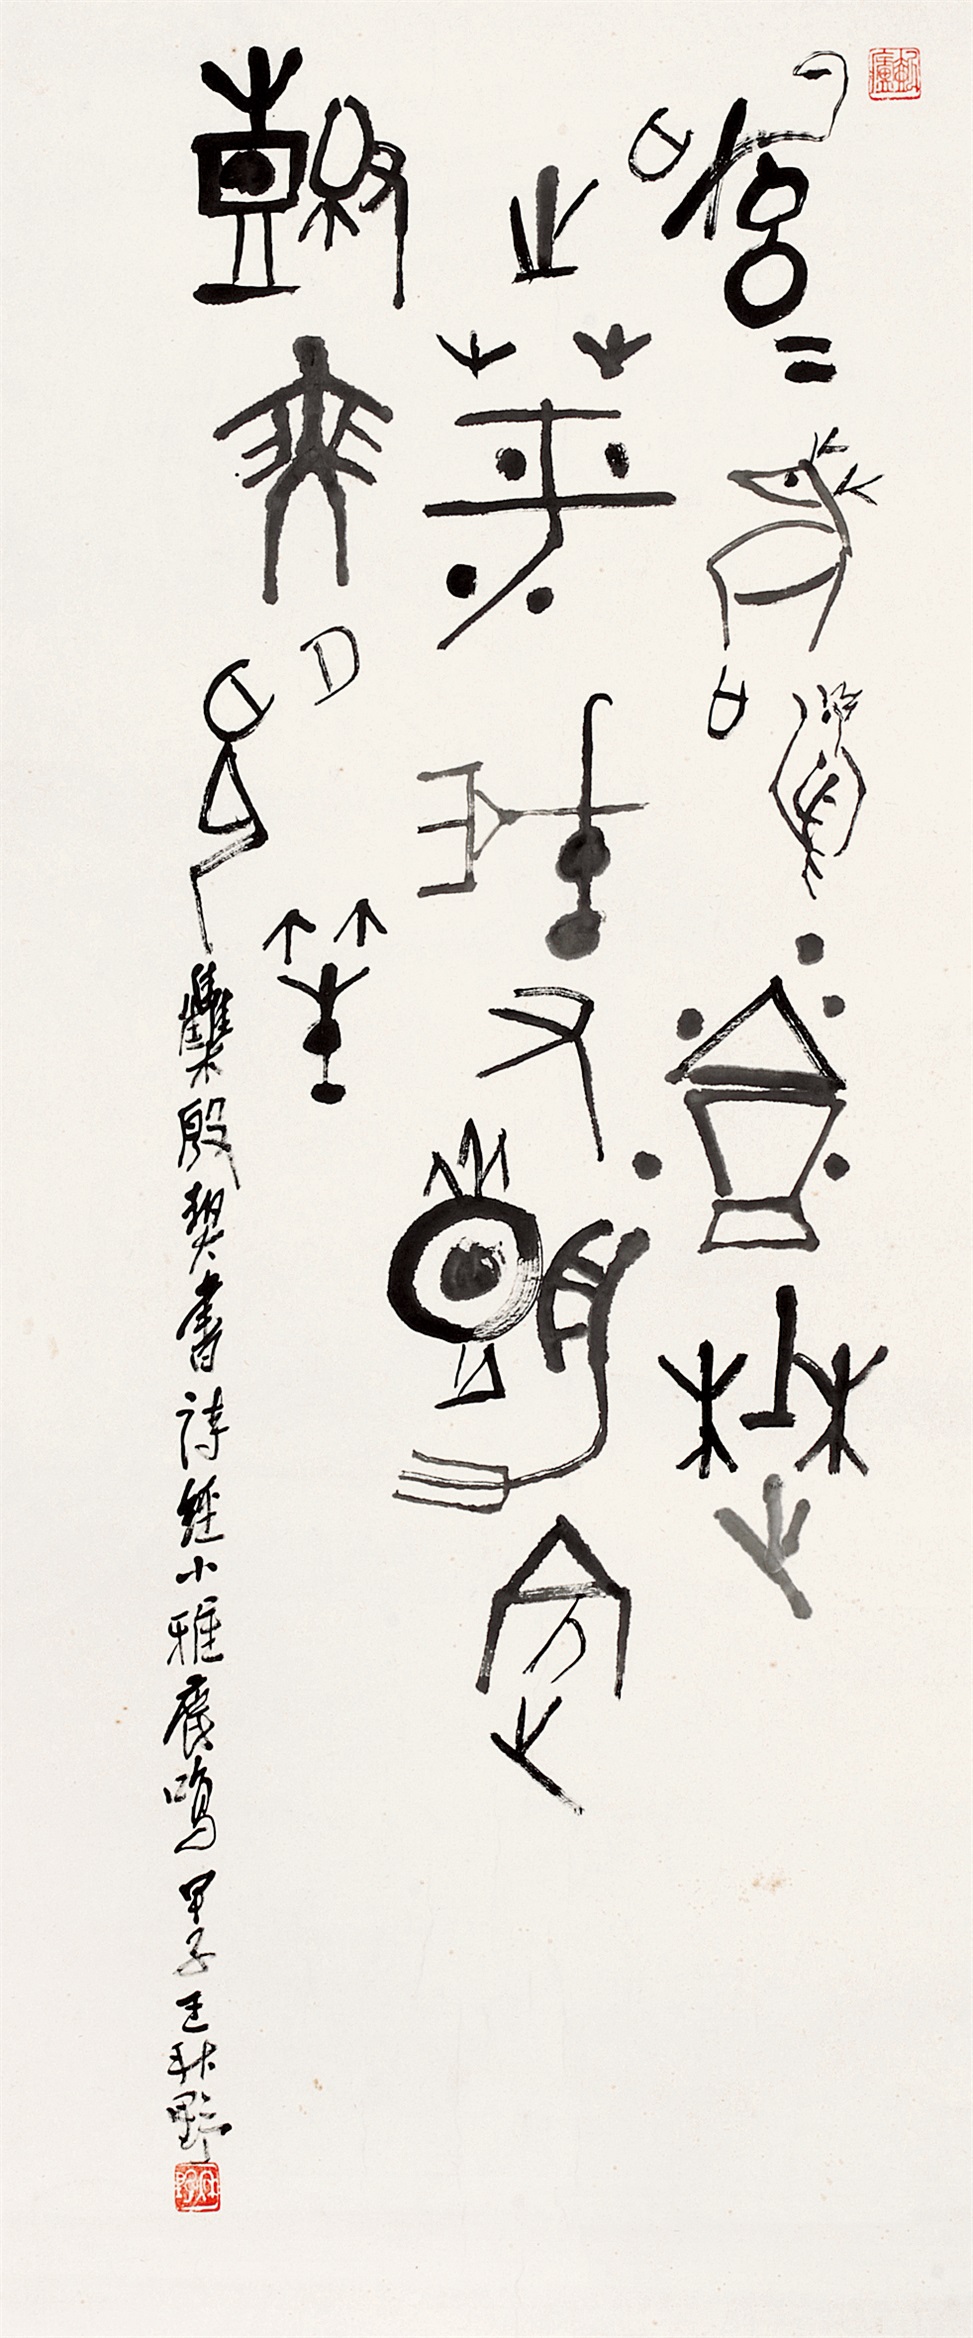 呦〻鹿鳴食埜
之苹我有嘉賓
鼓瑟吹笙
雧殷契書詩經小雅鹿鳴甲子王秋野